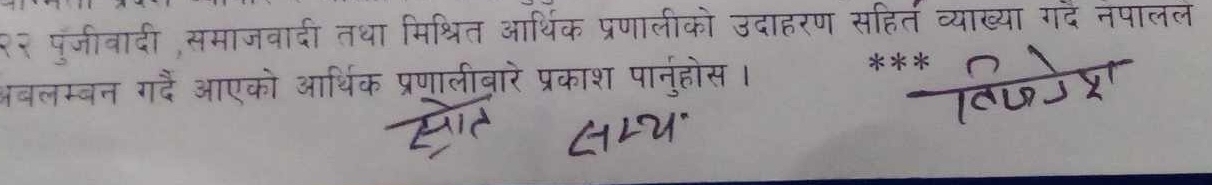 २२ पुंजीवादी ,समाजवादी तथा मिश्रित आर्थिक प्रणालीको उदाहरण सहित व्याख्या गर्दै नेपालले
अवलम्बन गर्दै आएको आर्थिक प्रणालीबारे प्रकाश पार्नुहोस ।
***
स्रोत